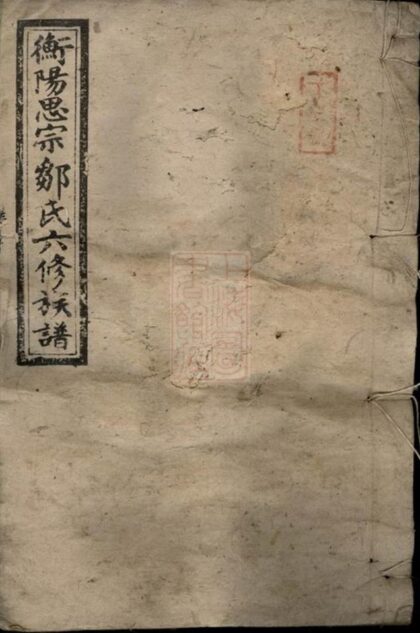 衡陽思宗鄒氏六修族譜